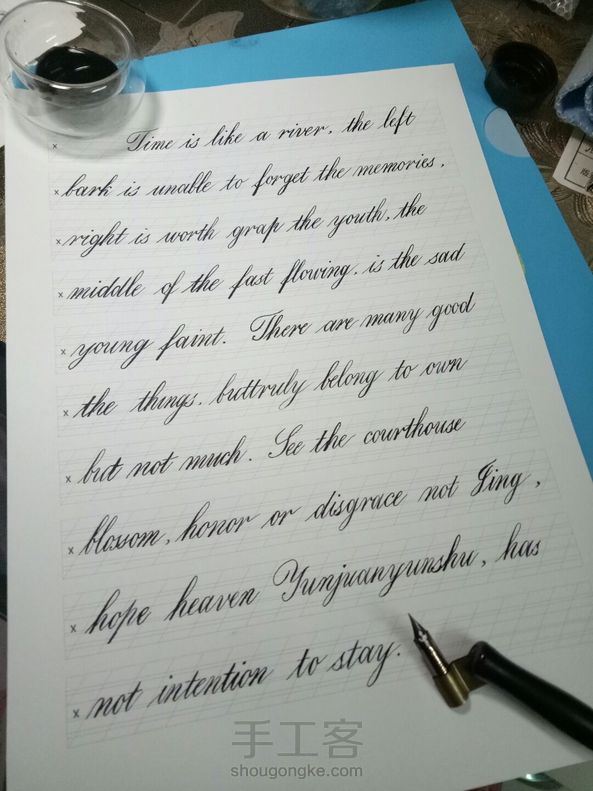 Time is like a river, the left
x bark is unable to forget the memories,
x right is worth grap the youth, the
x middle of the fast flowing, is the sad
x young faint. There are many good
x the things, buttruly belong to own
x but not much. See the courthouse
x blossom, honor or disgrace not Jing,
x hope heaven Yunjuanyunshu, has
x not intention to stay.
手工客
shougongke.com